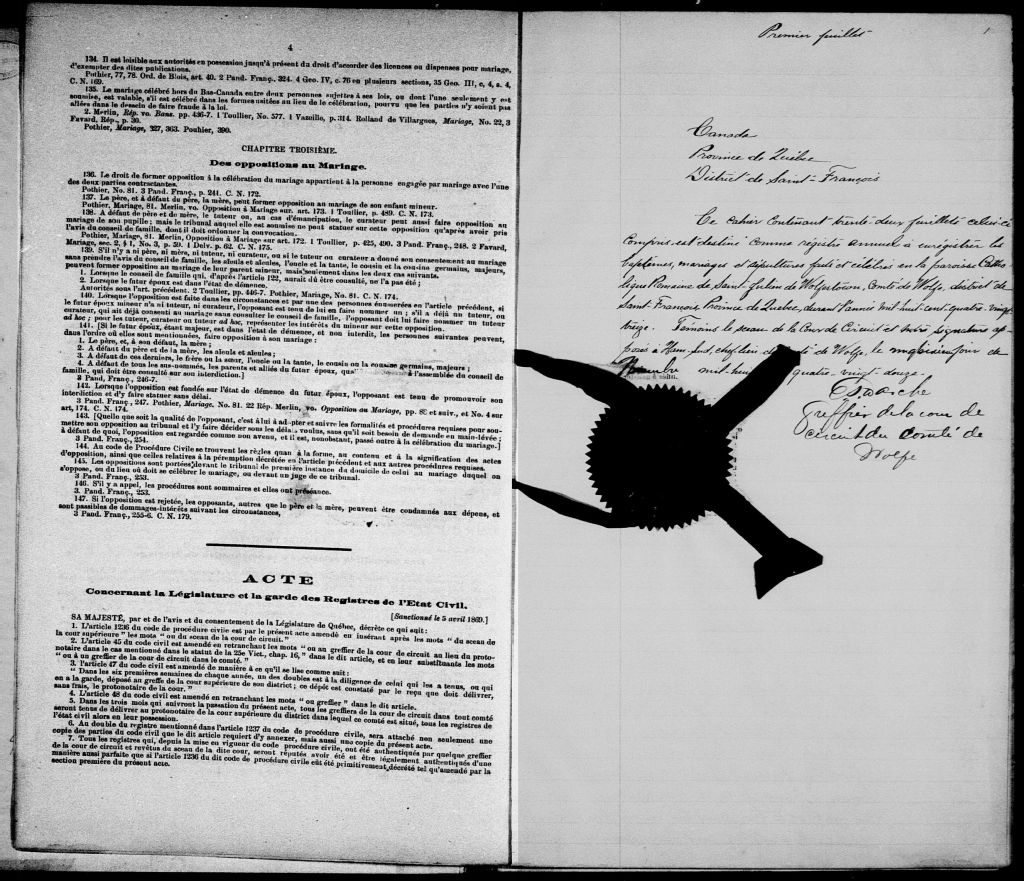 4
134. Il est loisible aux autorités en possession jusqu'à présent du droit d'accorder des licences ou dispenses pour mariage,
d'exempter des dites publications.
Pothier, 77, 78. Ord. de Blois, art. 40. 2 Pand. Franç. 324. 4 Geo. IV, c. 76 en plusieurs sections, 35 Geo. III, c, 4, s. 4,
C. N. 169.
135. Le mariage célébré hors du Bas-Canada entre deux personnes sujettes à ses lois, ou dont l'une seulement y est
soumise, est valable, s'il est célébré dans les formes usitées au lieu de la célébration, pourvu que les parties n'y soient pas
allées dans le dessein de faire fraude à la loi.
2. Merlin, Rép. vo. Bans. pp. 436-7. 1 Toullier, No. 577. 1 Vazeille, p. 314. Rolland de Villargues, Mariage, No. 22, 3
Favard, Rép., p. 30.
Pothier, Mariage, 327, 363. Pouhier, 390.
CHAPITRE TROISIÈME.
Des oppositions au Mariage.
136. Le droit de former opposition à la célébration du mariage appartient à la personne engagée par mariage avec l'une
des deux parties contractantes.
Pothier, No. 81. 3 Pand. Franç., p. 241. C. N. 172.
137. Le père, et à défaut du père, la mère, peut former opposition au mariage de son enfant mineur.
Pothier, Mariage, 81. Merlin, vo. Opposition à Mariage sur. art. 173. 1 Toullier, p. 489. C. N. 173.
138. A défaut de père et de mère, le tuteur ou, au cas d'émancipation, le curateur peut aussi faire opposition au
mariage de son pupille; mais le tribunal auquel elle est soumise ne peut statuer sur cette opposition qu'après avoir pris
l'avis du conseil de famille, dont il doit ordonner la convocation.
Pothier, Mariage, 81. Merlin, Opposition à Mariage sur art. 172. 1 Toullier, p. 425, 490. 3 Pand. Franç., 248. 2 Favard,
Mariage, sec. 2, § 1, No. 3, p. 59. 1 Delv. p. 62. C. N. 175.
139. S'il n'y a ni père, ni mère, ni tuteur, ni curateur, ou si le tuteur ou curateur a donné son consentement au mariage
sans prendre l'avis du conseil de famille, les aïeuls et aïeules, l'oncle et la tante, le cousin et la cousine germains, majeurs,
peuvent former opposition au mariage de leur parent mineur, mais seulement dans les deux cas suivants.
1. Lorsque le conseil de famille qui, d'après l'article 122, aurait dû être consulté, ne l'a pas été ;
2. Lorsque le futur époux est dans l'état de démence.
Autorités sous l'art. précédent. 2 Toullier, pp. 446-7. Pothier, Mariage, No. 81. C. N. 174.
140. Lorsque l'opposition est faite dans les circonstances et par une des personnes énumérées en l'article précédent, si
le futur époux mineur n'a ni tuteur, ni curateur, l'opposant est tenu de lui en faire nommer un ; s'il a déjà un tuteur, ou
curateur, qui ait déjà consenti au mariage sans consulter le conseil de famille, l'opposant doit lui faire nommer un tuteur
ad hoc ; pour les tuteur, curateur ou tuteur ad hoc, représenter les intérêts du mineur sur cette opposition.
141. [Si le futur époux, étant majeur, est dans l'état de démence, et non interdit, les personnes suivantes peuvent,
dans l'ordre où elles sont mentionnées, faire opposition à son mariage :
1. Le père, et, à son défaut, la mère ;
2. A défaut du père et de la mère, les aïeuls et aïeules ;
3. A défaut de ces derniers, le frère ou la sœur, l'oncle ou la tante, le cousin ou la cousine germains, majeurs ;
4. A défaut de tous les sus-nommés, les parents et alliés du futur époux, à l'assemblée du conseil de
famille, qui doit être consulté sur son interdiction.]
3 Pand. Franç., 246-7.
142. Lorsque l'opposition est fondée sur l'état de démence du futur époux, l'opposant est tenu de promouvoir son
interdiction et d'y faire statuer sans délai.
3 Pand. Franç., 247. Pothier, Mariage. No. 81. 22 Rép. Merlin, vo. Opposition au Mariage, pp. et suiv., et No. 4 sur
art, 174. C. N. 174.
143. [Quelle que soit la qualité de l'opposant, c'est à lui à adopter et suivre les formalités et procédures requises pour sou-
mettre son opposition au tribunal et l'y faire décider sous les délais voulus, sans qu'il soit besoin de demande en main-levée ;
à défaut de quoi, l'opposition est regardée comme non avenue, et il est, nonobstant, passé outre à la célébration du mariage.]
3 Pand. Franç., 254.
144. Au code de Procédure Civile se trouvent les règles quan à la forme, au contenu et à la signification des actes
d'opposition, ainsi que celles relatives à la péremption décrétée en l'article précédent et aux autres procédures requises.
145. Les oppositions sont portées devant le tribunal de première instance du domicile de celui au mariage duquel on
s'oppose, ou du lieu où doit se célébrer le mariage, ou devant un juge de ce tribunal.
3 Pand. Franç., 253.
146. S'il y a appel, les procédures sont sommaires et elles ont préséance.
3. Pand. Franç., 253.
147. Si l'opposition est rejetée, les opposants, autres que le père et la mère, peuvent être condamnés aux dépens, et
sont passibles de dommages-intérêts suivant les circonstances,
3 Pand. Franç., 255-6. C. N. 179.
ACTE
Concernant la Législature et la garde des Registres de l'Etat Civil.
[Sanctionné le 5 avril 1869.]
SA MAJESTÉ, par et de l'avis et du consentement de la Législature de Québec, décrète ce qui suit:
1. L'article 1236 du code de procédure civile est par le présent acte amendé en insérant après les mots "du sceau de
la cour supérieure" les mots "ou du sceau de la cour de circuit."
2. L'article 45 du code civil est amendé en retranchant les mots "ou au greffier de la cour de circuit au lieu du proto-
notaire dans le cas mentionné dans le statut de la 25e Vict., chap. 16," dans le dit article, et en leur substituants les mots
"ou à un greffier de la cour de circuit dans le comté."
3. l'article 47 du code civil est amendé de manière à ce qu'il se lise comme suit :
" Dans les six premières semaines de chaque année, un des doubles est à la diligence de celui qui les a tenus, ou qui
en a la garde, déposé au greffe de la cour supérieure de son district ; ce dépôt est constaté par le reçu que doit délivrer,
sans frais, le protonotaire de la cour."
4. L'article 48 du code civil est amendé en retranchant les mots "ou greffier" dans le dit article.
5. Dans les trois mois qui suivront la passation du présent acte, tous les greffiers de la cour de circuit dans tout comté
seront tenus de délivrer au protonotaire de la cour supérieure du district dans lequel ce comté est situé, tous les registres de
l'état civil alors en leur possession.
6. Au double du registre mentionné dans l'article 1237 du code de procédure civile, sera attaché non seulement une
copie des parties du code civil que le dit article requiert d'y annexer, mais aussi une copie du présent acte.
7. Tous les registres qui, depuis la mise en vigueur du code procédure civile, ont été authentiqués par quelque greffier
de la cour de circuit et revêtus du sceau de la dite cour, seront réputés avoir été et être légalement authentiqués d'une
manière aussi parfaite que si l'article 1236 du dit code de procédure civile eût été primitivement décrété tel qu'amendé par la
section première du présent acte.
Premier feuillet
1
Canada
Province de Québec
District de Saint-François
Ce cahier contenant trente deux feuillets celui-ci
compris est destiné comme registre annuel à enregistrer les
baptêmes, mariages et sépultures faits et célébrés en la paroisse Catho
lique Romaine de Saint-Julien de Wolfestown, Comté de Wolfe, district de
Saint François Province de Québec, durant l'année mil huit cent quatre vingt
treize. Témoins le sceau de la Cour de Circuit et notre signature ap-
posés à Ham-Sud, chef lieu du comté de Wolfe, le jour de
mil huit quatre-vingt-douze.
Greffier de la cour de
circuit du comté de
Wolfe